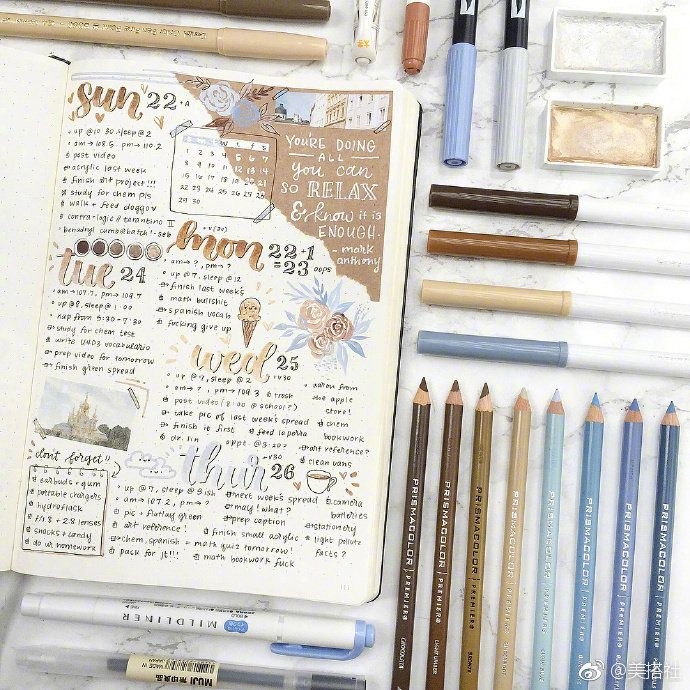 sun 22
• up @ 10:30, sleep @ 2
• am → 108.5, pm → 110.2
post video
acrylic last week
finish art project!!!
study for chem pis
walk + feed doggo
contra-logic // tarantino II
S M T W T F S
1 2 3 4 5 6 7
8 9 10 11 12 13 14
15 16 17 18 19 20 21
22 23 24 25 26 27 28
29 30
YOU'RE DOING
ALL
you can
SO RELAX
& know it is
ENOUGH.
- mark
anthony
mon 22+1
=23 oops
• am → ?, pm → ?
• up @ 7, sleep @ 12
finish last week's
math bullshit
spanish vocab
fucking give up
tue 24
• am → 107.7, pm → 109.7
• up @ 8, sleep @ 1:00
• nap from 5:30 - 7:30
study for chem test
write UND3 vocabulary
prep video for tomorrow
finish green spread
wed 25
• up @ 9, sleep @ 2
• am → ?, pm → 109.3
trash
post video (8:00 @ school?)
take pic of last week's spread
finish it first
dr. lin appt. @ 3:20
aaron from
the apple
store!
chem
bookwork
art reference?
clean vans
don't forget!!
earbuds + gum
portable chargers
hydroflask
f/1.8 + 2.8 lenses
snacks + candy
do ur homework
thur 26
• up @ 7, sleep @ 1ish
• am → 107.2, pm → ?
pic + flatlay green
art reference!
chem, spanish + math quiz tomorrow!
pack for it!!!
next week's spread
may! what?
prep caption
finish small acrylic
math bookwork fuck
camera
batteries
stationery
light pollute
facts?
MILDLINER
MUJI 無印良品
MADE IN
JAPAN
PRISMACOLOR PREMIER
PRISMACOLOR PREMIER
PRISMACOLOR PREMIER
PRISMACOLOR PREMIER
PRISMACOLOR PREMIER
PRISMACOLOR PREMIER
PRISMACOLOR PREMIER
PRISMACOLOR PREMIER
@美搭社